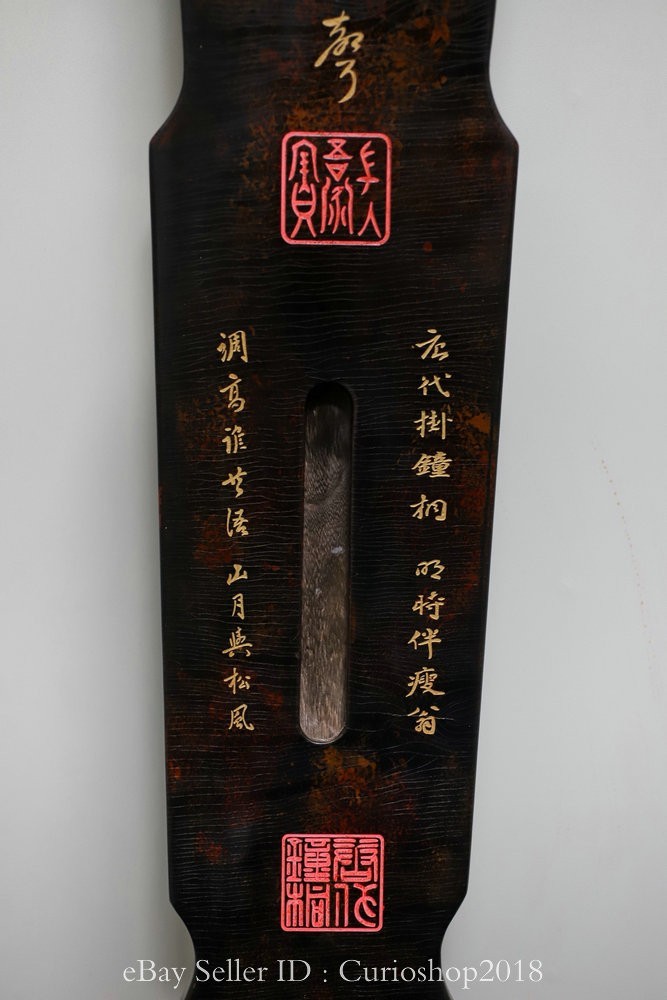 唐代掛鐘桐 明時伴瘦翁
調高誰共語 山月與松風
唐代
鐘桐
eBay Seller ID : Curioshop2018